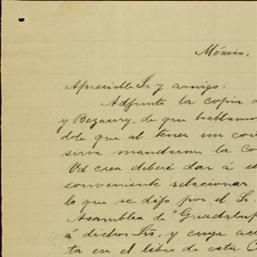 México,
Apreciable Sr. y amigo:
Adjunto la copia d
y Bezaury, de que hablamo
dole que al tener un cori
sirva mandarme la co
Vd crea deberé dar á es
conveniente relacionar
lo que se dijo por el Sr.
Asamblea de "Guadalup
á dichos Srs, y cuya ac
ta en el libro de esta C